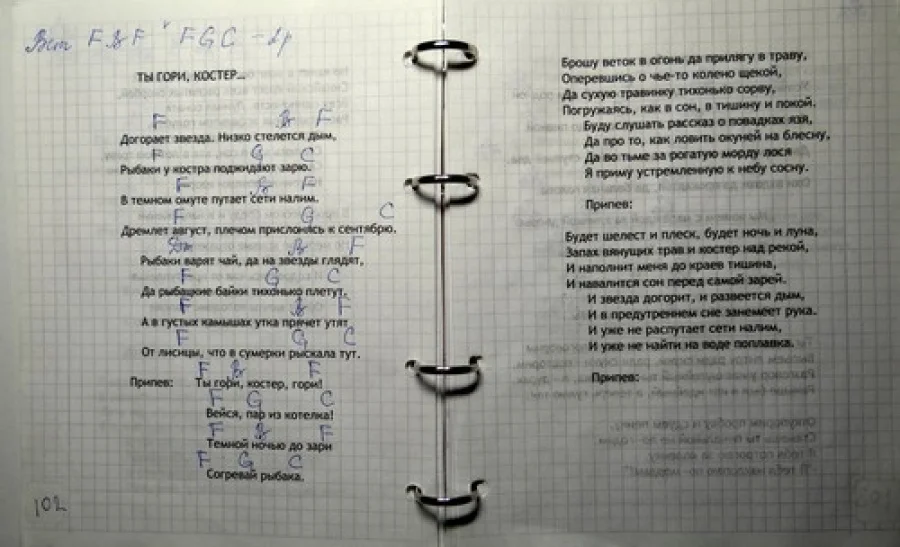 Вст F B F F G C - 2р
ТЫ ГОРИ, КОСТЕР...
F B F
Догорает звезда. Низко стелется дым,
F G C
Рыбаки у костра поджидают зарю.
F B F
В темном омуте путает сети налим.
F G C
Дремлет август, плечом прислонясь к сентябрю.
Dm B F
Рыбаки варят чай, да на звезды глядят,
F G C
Да рыбацкие байки тихонько плетут,
F B F
А в густых камышах утка прячет утят
F G C
От лисицы, что в сумерки рыскала тут.
F B F
Припев: Ты гори, костер, гори!
F G C
Вейся, пар из котелка!
F B F
Темной ночью до зари
F G C
Согревай рыбака.
102
Брошу веток в огонь да прилягу в траву,
Оперевшись о чье-то колено щекой,
Да сухую травинку тихонько сорву,
Погружаясь, как в сон, в тишину и покой.
Буду слушать рассказ о повадках язя,
Да про то, как ловить окуней на блесну,
Да во тьме за рогатую морду лося
Я приму устремленную к небу сосну.
Припев:
Будет шелест и плеск, будет ночь и луна,
Запах вянущих трав и костер над рекой,
И наполнит меня до краев тишина,
И навалится сон перед самой зарей.
И звезда догорит, и развеется дым,
И в предутреннем сне занемеет рука.
И уже не распутает сети налим,
И уже не найти на воде поплавка.
Припев: